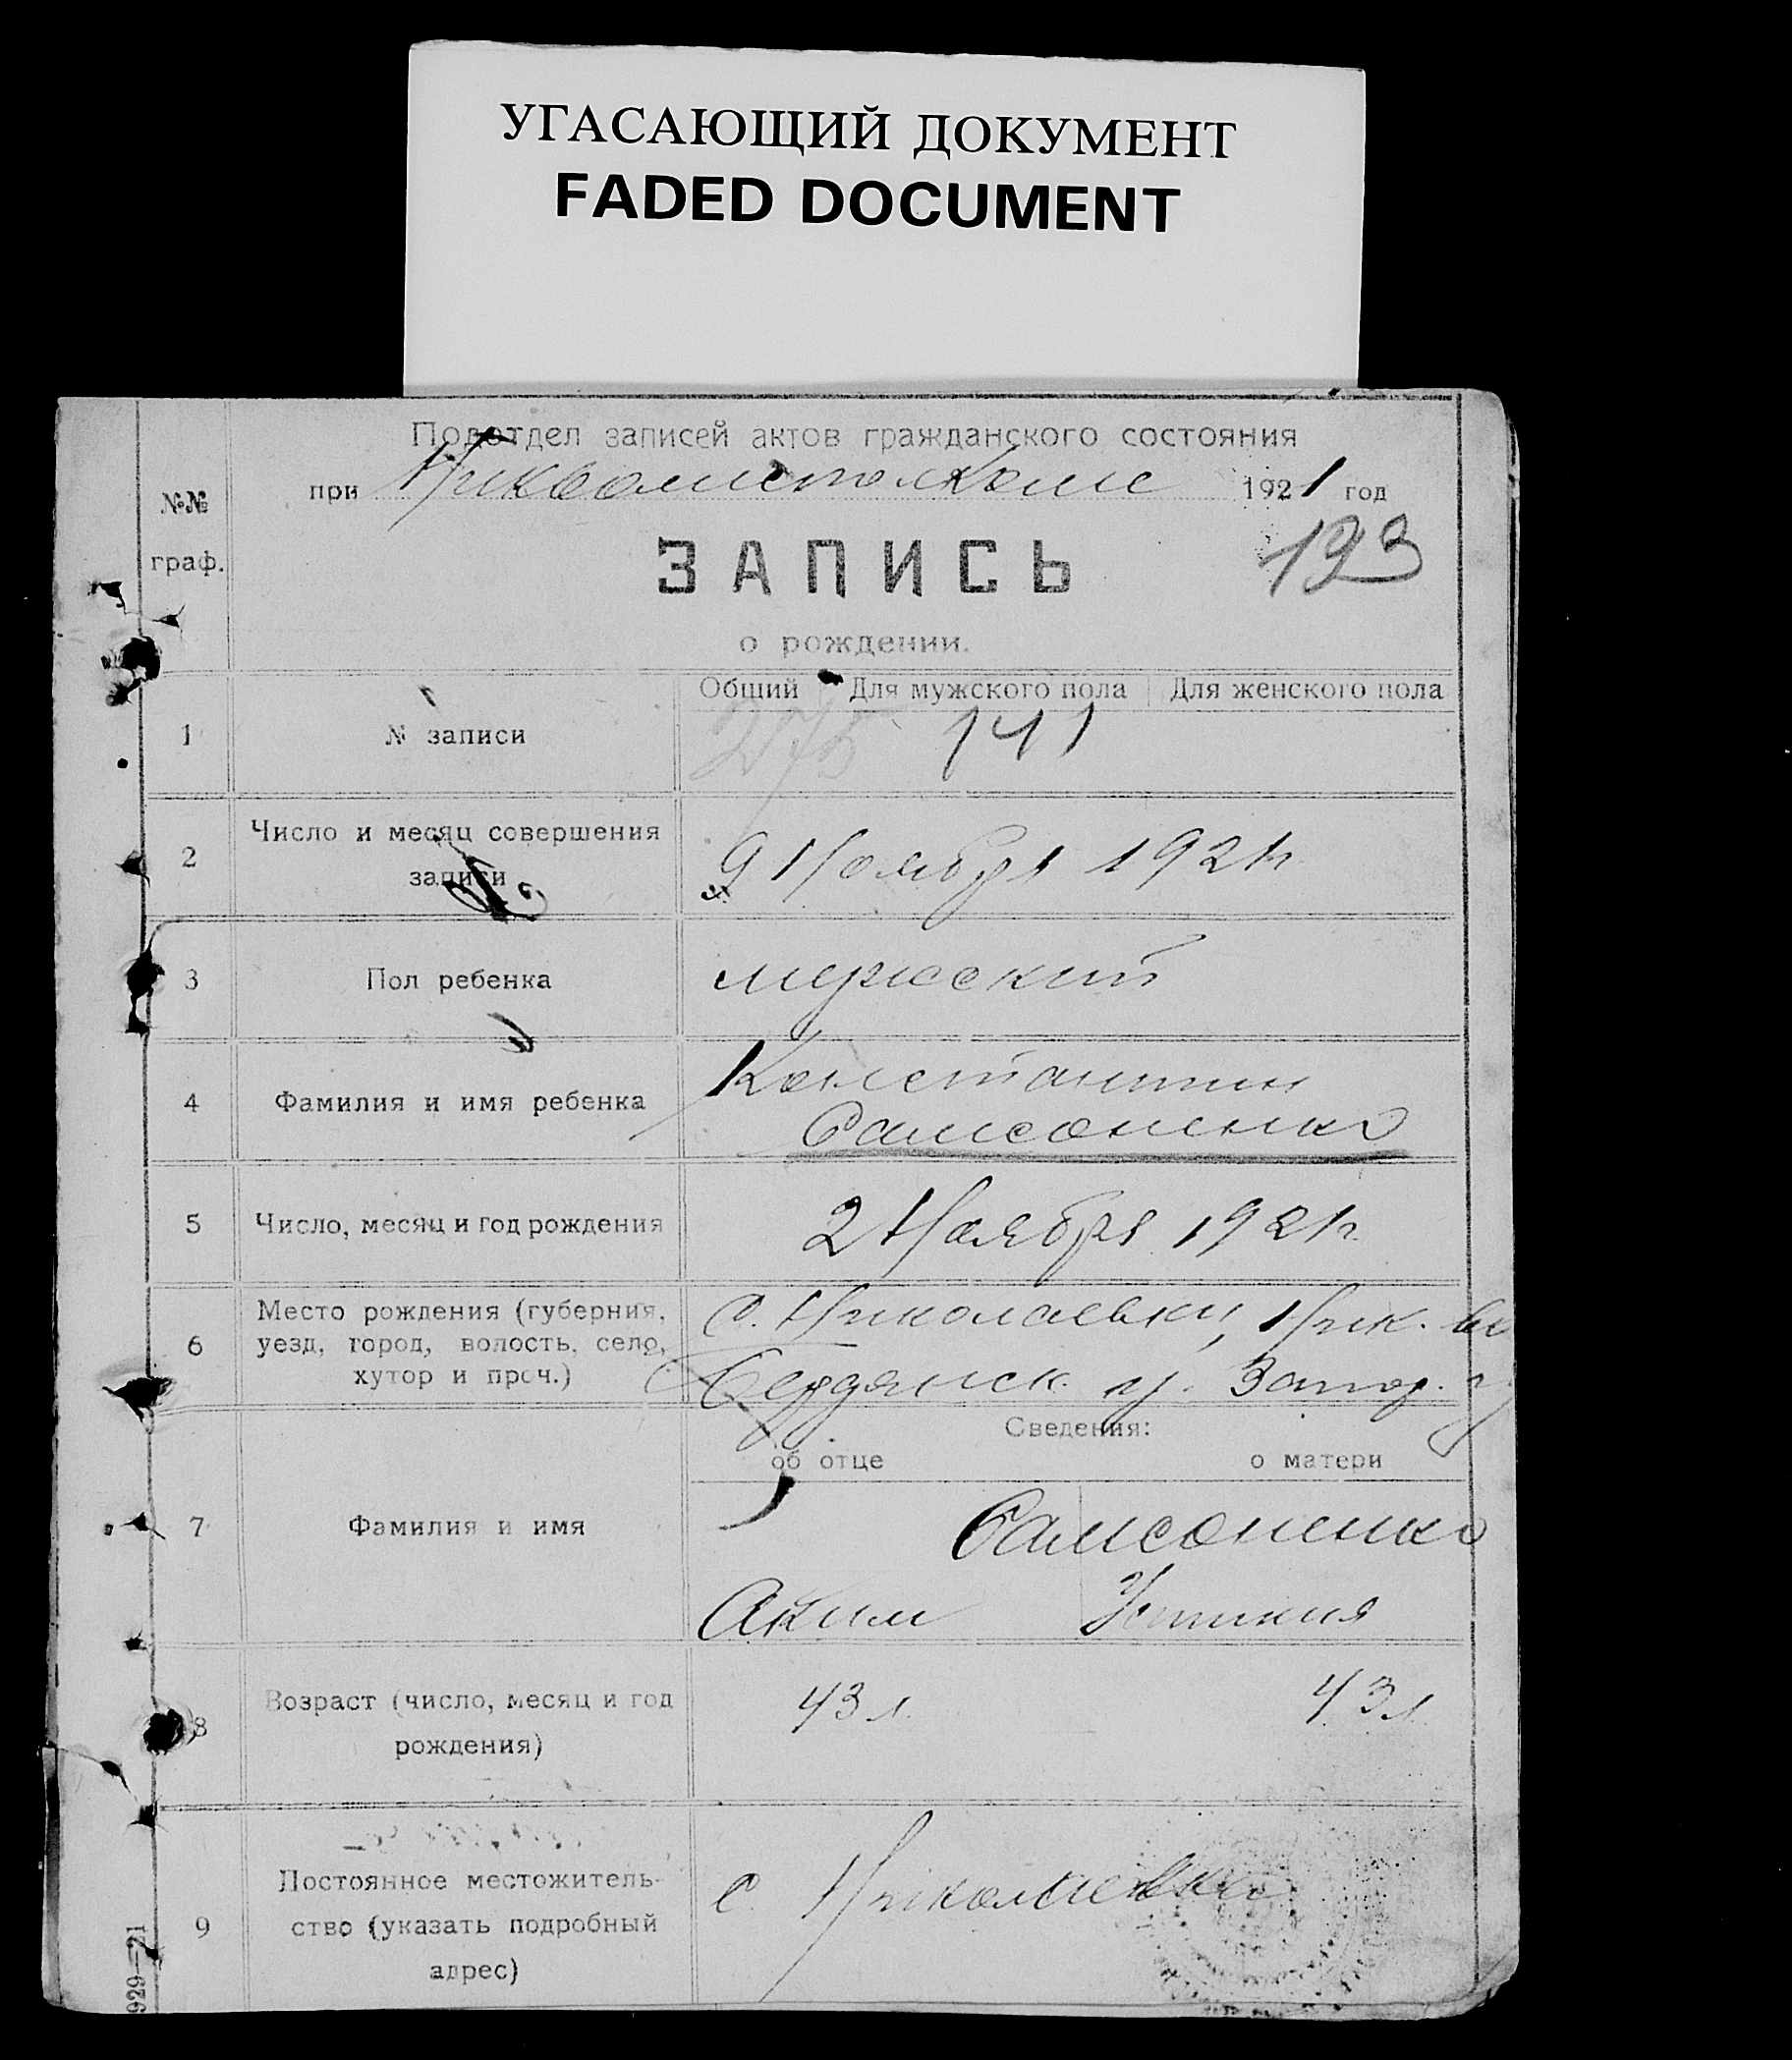 УГАСАЮЩИЙ ДОКУМЕНТ
FADED DOCUMENT
Подотдел записей актов гражданского состояния
при 1921 год
№№
граф.
ЗАПИСЬ
133
о рождении.
Общий Для мужского пола Для женского пола
1 № записи 275 141
2 Число и месяц совершения
записи
9 Ноября 1921г.
3 Пол ребенка мужской
4 Фамилия и имя ребенка
Константин
Самсоненко
5 Число, месяц и год рождения 2 Ноября 1921г.
6 Место рождения (губерния,
уезд, город, волость, село,
хутор и проч.)
С. Николаевку, Ник. в
Бердянск. у. Запор. г
Сведения:
об отце о матери
7 Фамилия и имя
Самсоненко
Аким
8 Возраст (число, месяц и год
рождения)
43 л. 43 л.
9 Постоянное местожитель-
ство (указать подробный
адрес)
с. Николаевка
929—21